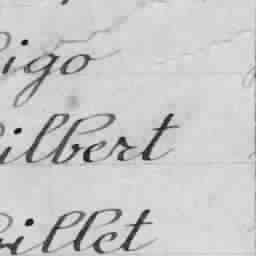 Gigo
Gilbert
Gillet